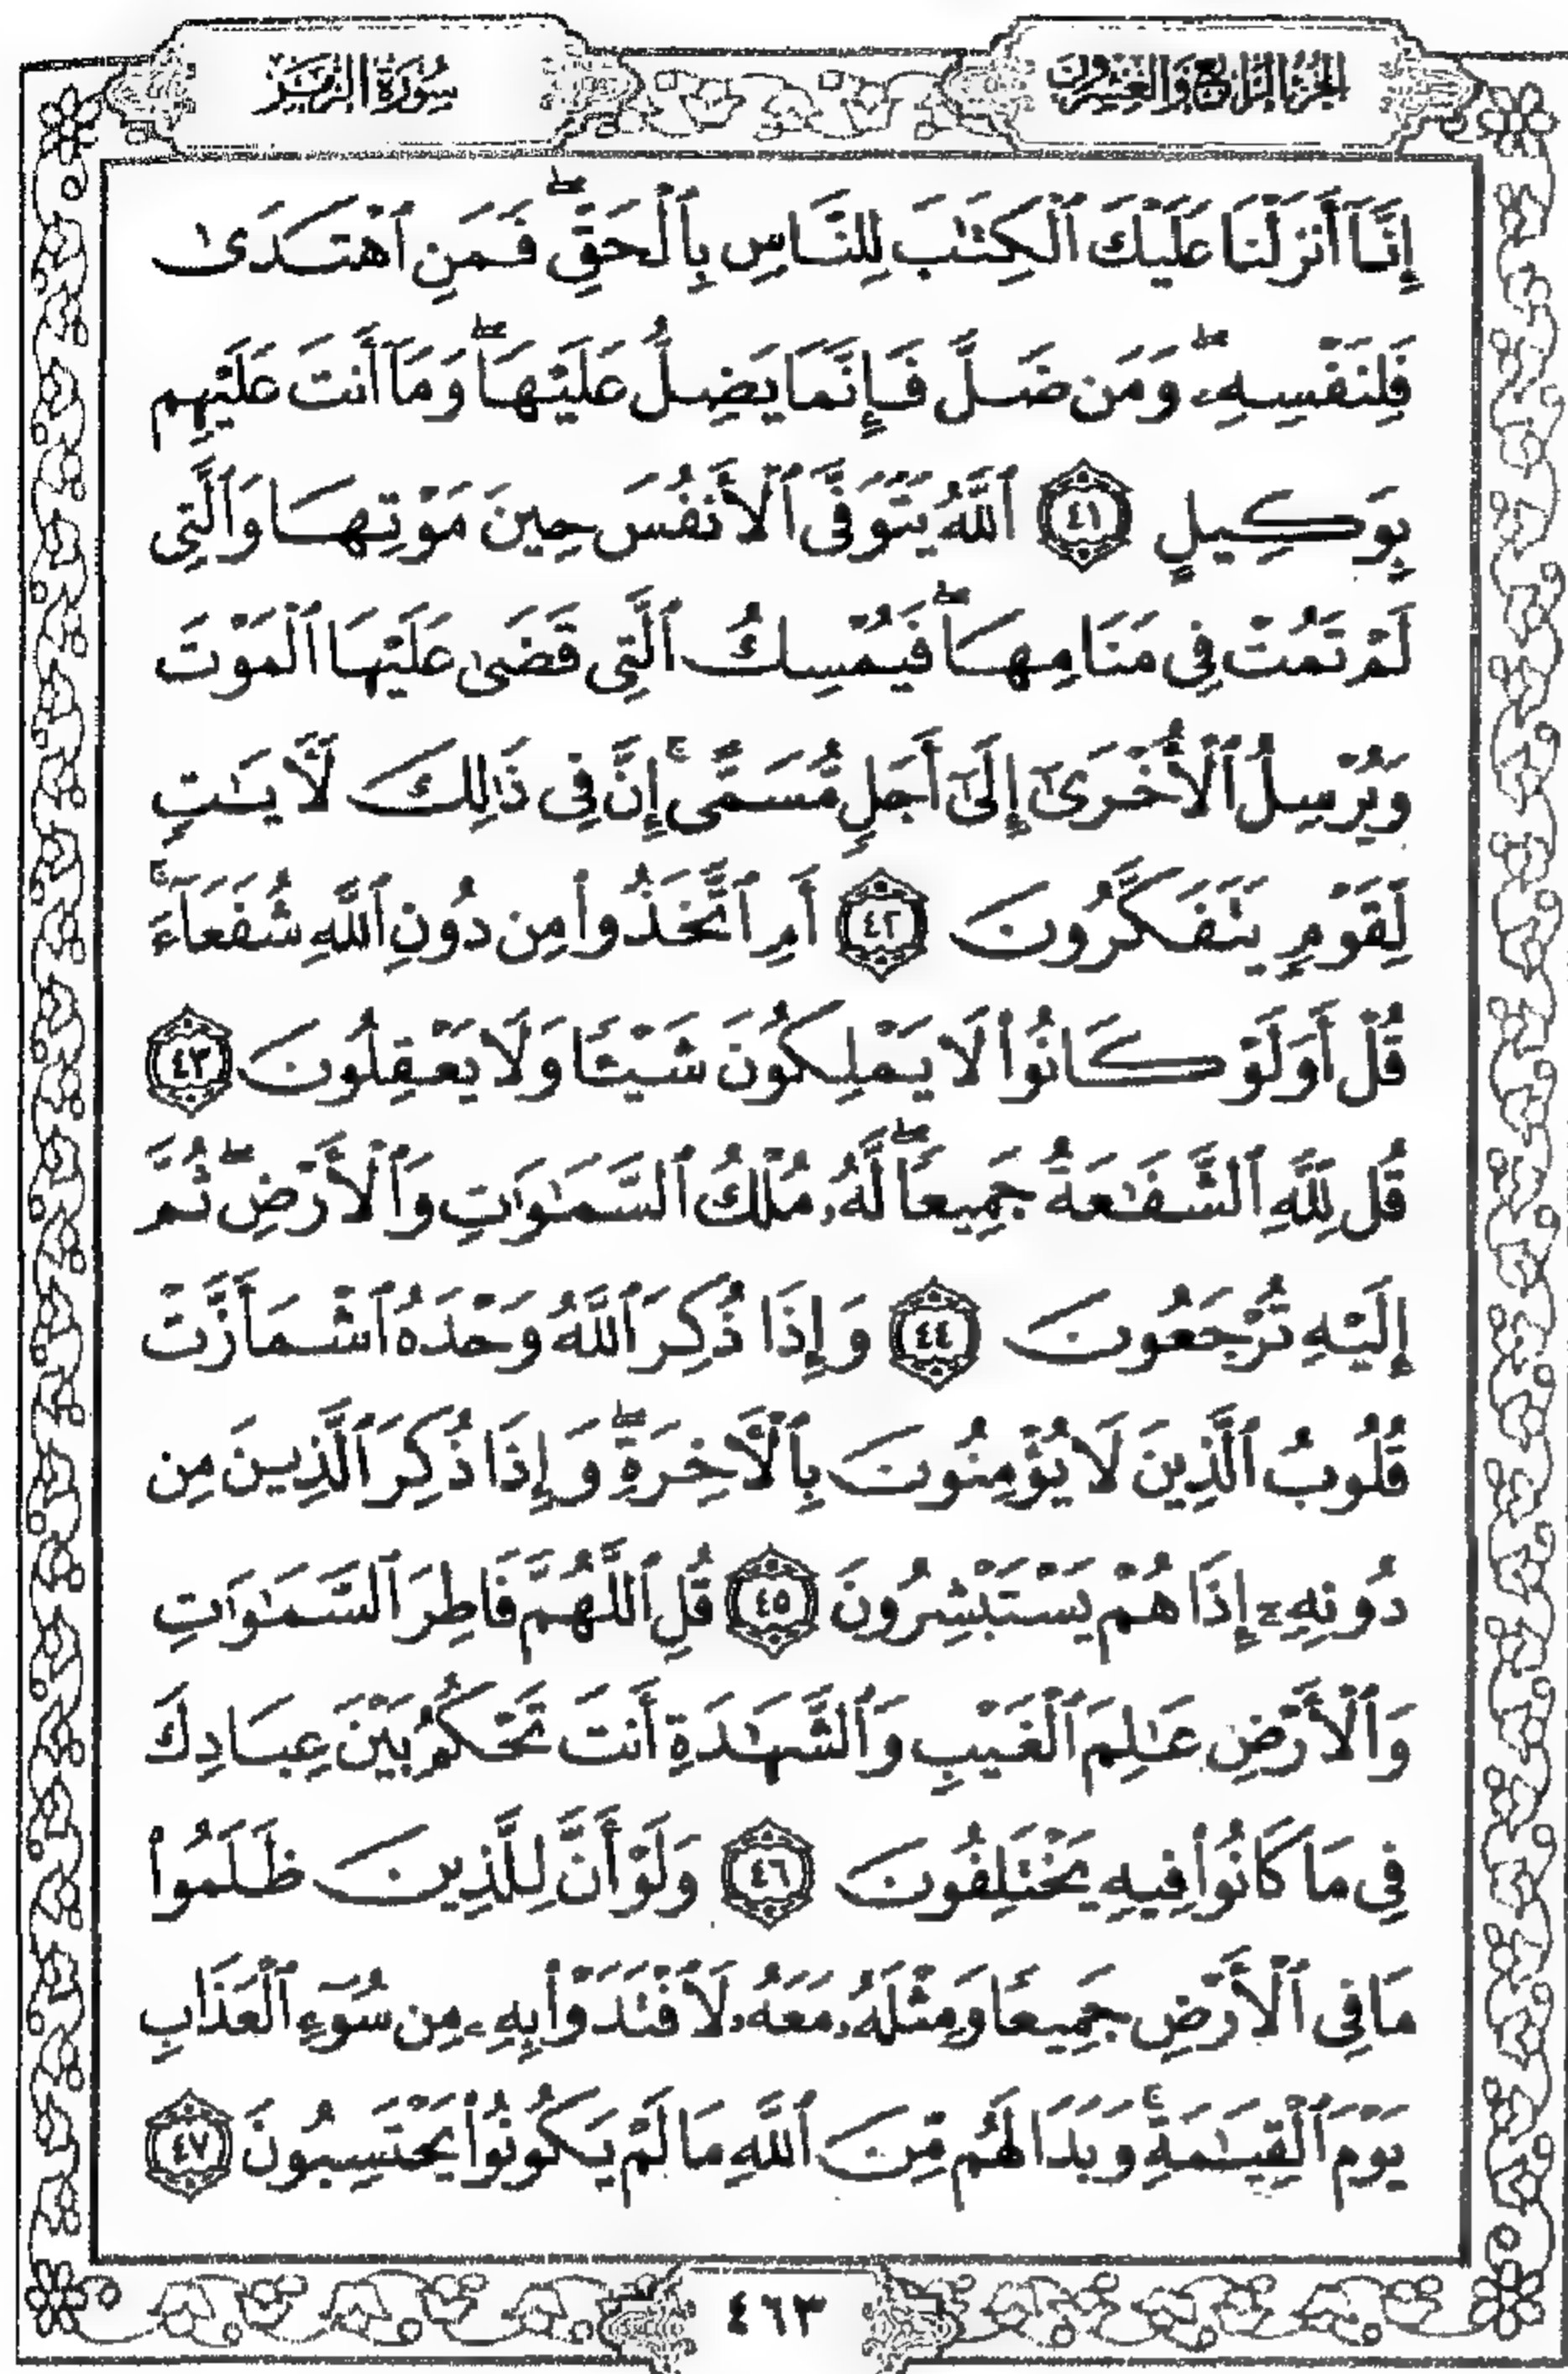 الجزء الرابع والعشرون
سورة الزمر
إِنَّآ أَنزَلْنَا عَلَيْكَ ٱلْكِتَٰبَ لِلنَّاسِ بِٱلْحَقِّ ۖ فَمَنِ ٱهْتَدَىٰ
فَلِنَفْسِهِۦ ۖ وَمَن ضَلَّ فَإِنَّمَا يَضِلُّ عَلَيْهَا ۖ وَمَآ أَنتَ عَلَيْهِم
بِوَكِيلٍ ٤١ ٱللَّهُ يَتَوَفَّى ٱلْأَنفُسَ حِينَ مَوْتِهَا وَٱلَّتِى
لَمْ تَمُتْ فِى مَنَامِهَا ۖ فَيُمْسِكُ ٱلَّتِى قَضَىٰ عَلَيْهَا ٱلْمَوْتَ
وَيُرْسِلُ ٱلْأُخْرَىٰٓ إِلَىٰٓ أَجَلٍ مُّسَمًّى ۚ إِنَّ فِى ذَٰلِكَ لَءَايَٰتٍ
لِّقَوْمٍ يَتَفَكَّرُونَ ٤٢ أَمِ ٱتَّخَذُوا۟ مِن دُونِ ٱللَّهِ شُفَعَآءَ ۚ
قُلْ أَوَلَوْ كَانُوا۟ لَا يَمْلِكُونَ شَيْـًٔا وَلَا يَعْقِلُونَ ٤٣
قُل لِّلَّهِ ٱلشَّفَٰعَةُ جَمِيعًا ۖ لَّهُۥ مُلْكُ ٱلسَّمَٰوَٰتِ وَٱلْأَرْضِ ۖ ثُمَّ
إِلَيْهِ تُرْجَعُونَ ٤٤ وَإِذَا ذُكِرَ ٱللَّهُ وَحْدَهُ ٱشْمَأَزَّتْ
قُلُوبُ ٱلَّذِينَ لَا يُؤْمِنُونَ بِٱلْءَاخِرَةِ ۖ وَإِذَا ذُكِرَ ٱلَّذِينَ مِن
دُونِهِۦٓ إِذَا هُمْ يَسْتَبْشِرُونَ ٤٥ قُلِ ٱللَّهُمَّ فَاطِرَ ٱلسَّمَٰوَٰتِ
وَٱلْأَرْضِ عَٰلِمَ ٱلْغَيْبِ وَٱلشَّهَٰدَةِ أَنتَ تَحْكُمُ بَيْنَ عِبَادِكَ
فِى مَا كَانُوا۟ فِيهِ يَخْتَلِفُونَ ٤٦ وَلَوْ أَنَّ لِلَّذِينَ ظَلَمُوا۟
مَا فِى ٱلْأَرْضِ جَمِيعًا وَمِثْلَهُۥ مَعَهُۥ لَٱفْتَدَوْا۟ بِهِۦ مِن سُوٓءِ ٱلْعَذَابِ
يَوْمَ ٱلْقِيَٰمَةِ ۚ وَبَدَا لَهُم مِّنَ ٱللَّهِ مَا لَمْ يَكُونُوا۟ يَحْتَسِبُونَ ٤٧
٤٦٣